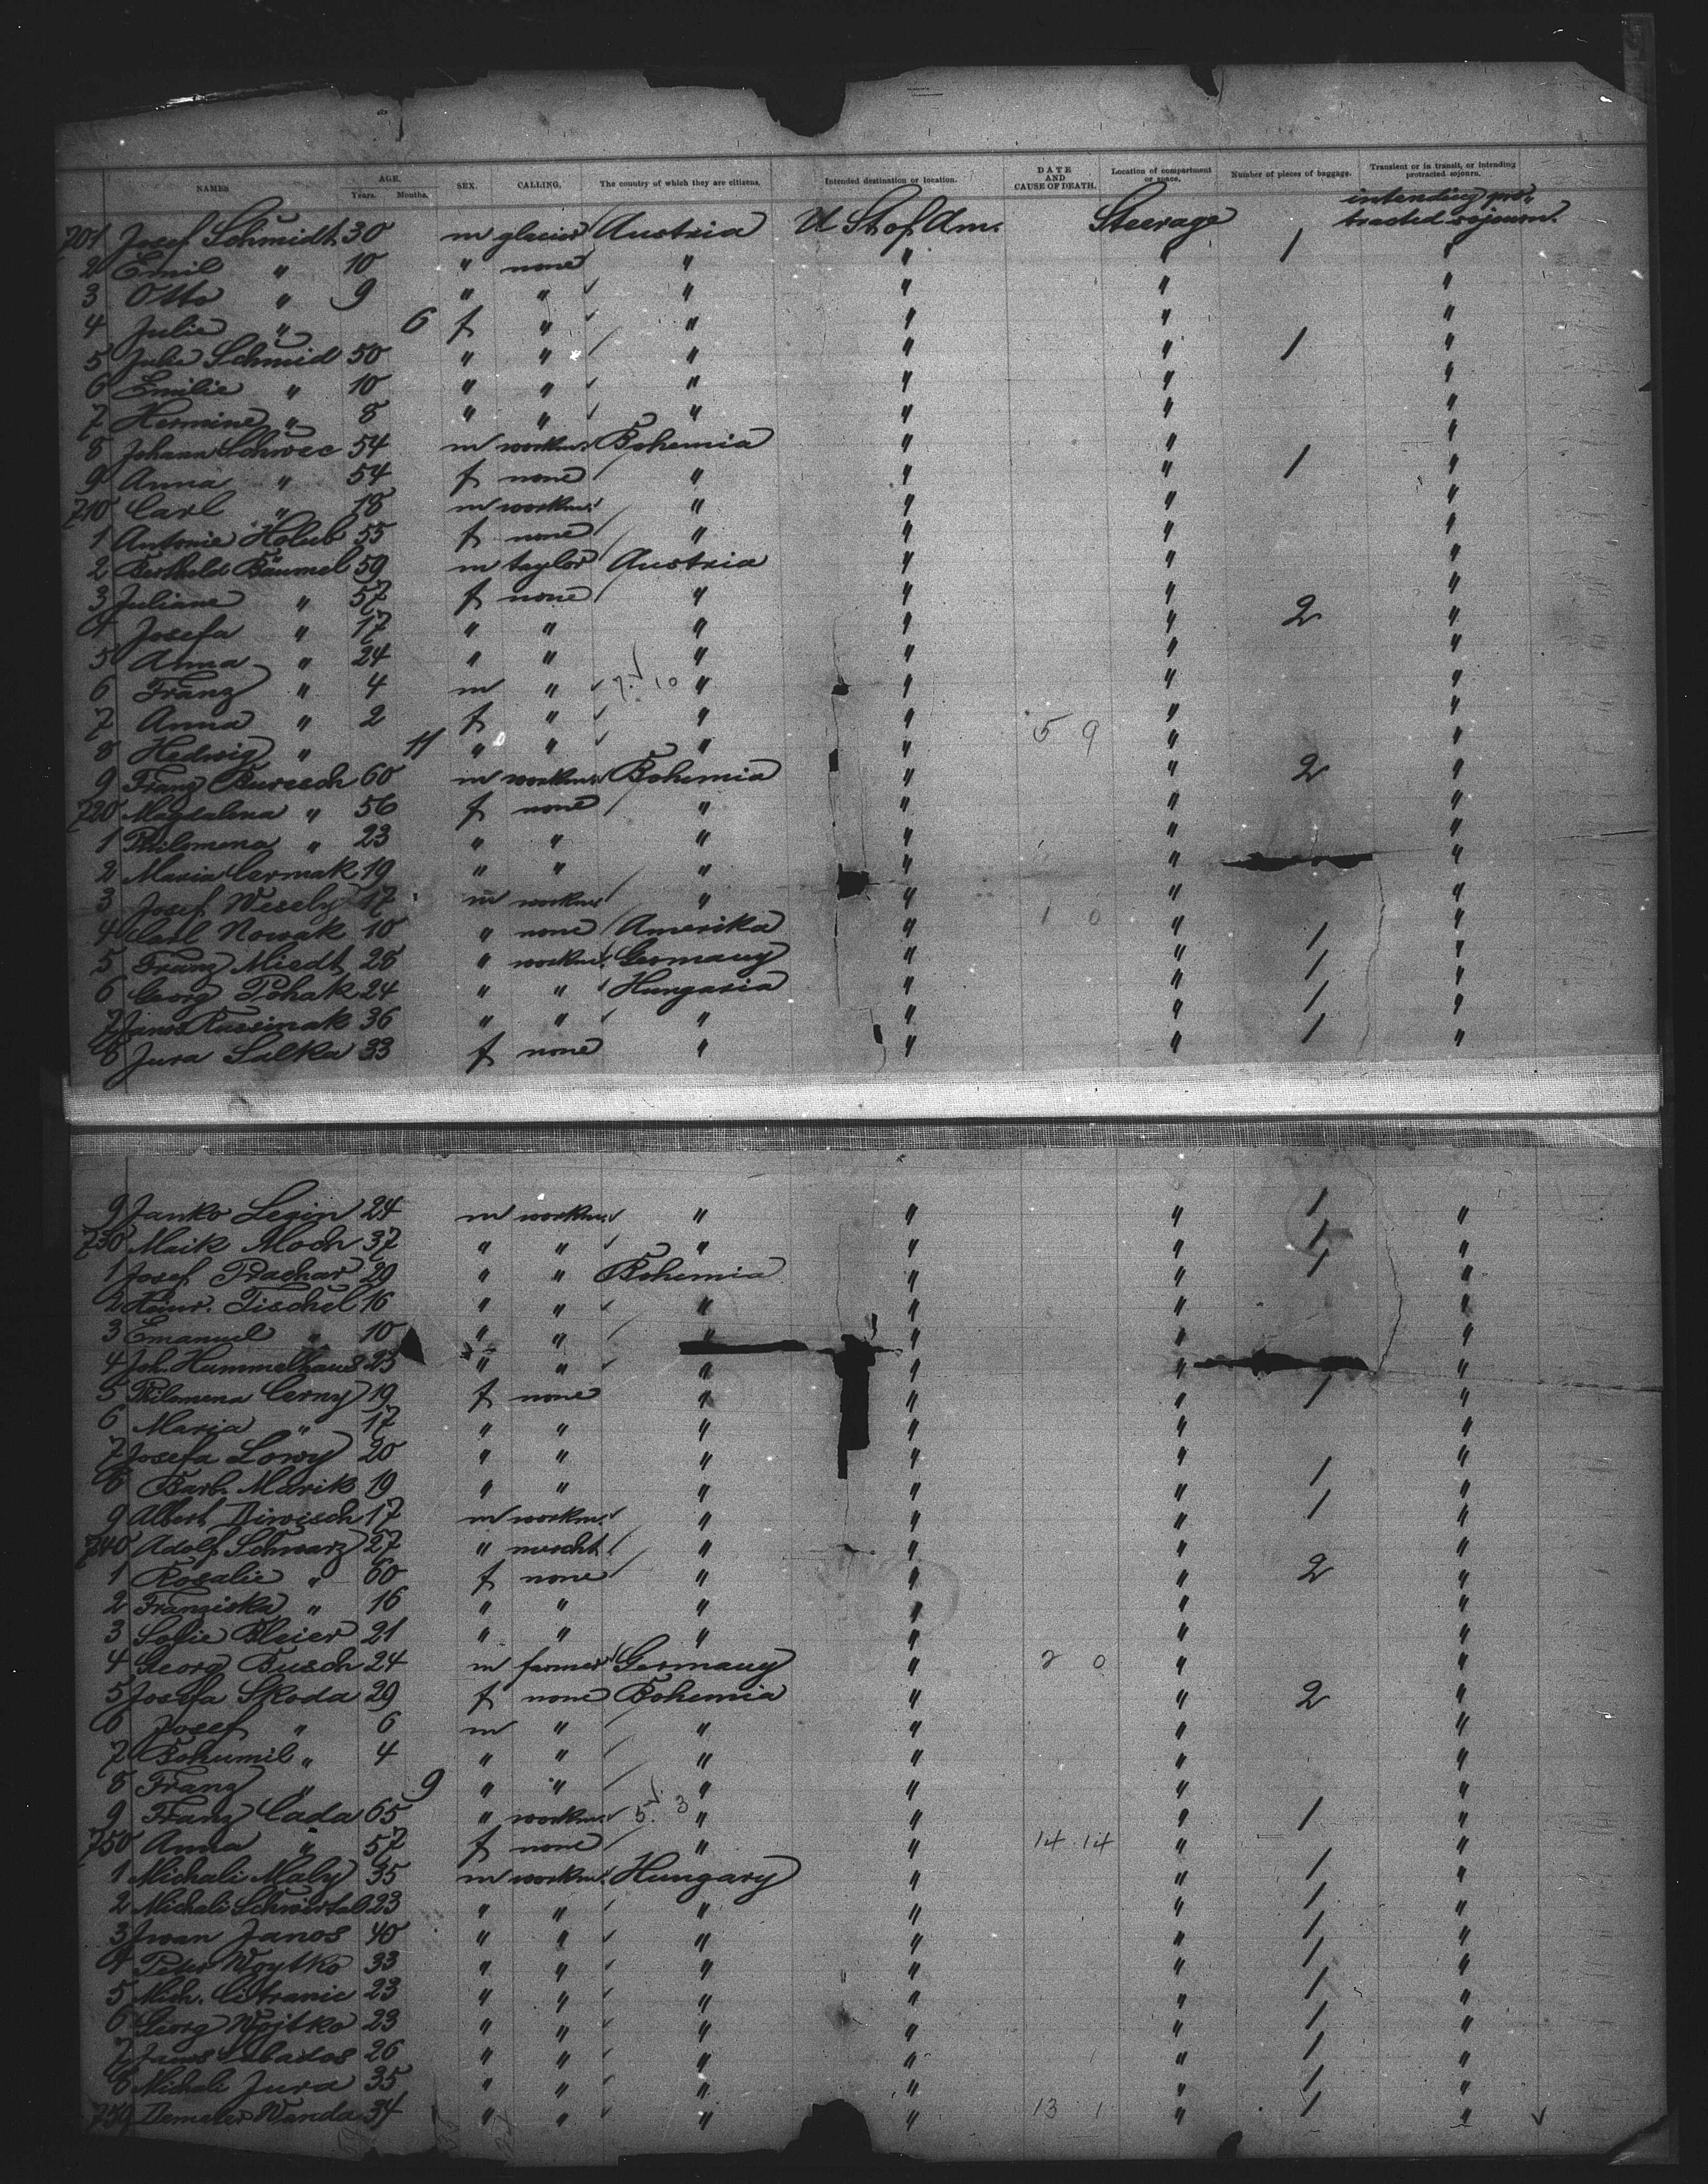 NAMES AGE. Years. Months. SEX. CALLING. The country of which they are citizens. Intended destination or location. DATE AND CAUSE OF DEATH. Location of compartment or space. Number of pieces of baggage. Transient or in transit, or intending protracted sojourn.
701 Josef Schmidt 30 m glacier Austria U St of Am. Steerage 1 intending protracted sojourn.
2 Emil " 10 " none " " " "
3 Otto " 9 " " " " " "
4 Julie " 6 f " " " " "
5 Julie Schmid 50 " " " " " 1 "
6 Emilie " 10 " " " " " "
7 Hermine " 8 " " " " " "
8 Johann Schwec 54 m workm. Bohemia " " 1 "
9 Anna " 54 f none " " " "
710 Carl " 18 m workm. " " " "
1 Antonie Holub 55 f none " " " "
2 Berthold Bäumel 59 m taylor Austria " " "
3 Juliane " 57 f none " " " 2 "
4 Josefa " 17 " " " " " "
5 Anna " 24 " " " " " "
6 Franz " 4 m " 7. 10 " " " "
7 Anna " 2 f " " " 5 9 " "
8 Hedwig " 11 " " " " " "
9 Franz Buresch 60 m workm. Bohemia " " 2 "
720 Magdalena " 56 f none " " " "
1 Philomena " 23 " " " " " "
2 Maria Cermak 19 " " " " " "
3 Josef Wesely 17 m workm. " " 1 0 " "
4 Carl Nowak 10 " none Amerika " " 1 "
5 Franz Miedt 28 " workm. Germany " " 1 "
6 Georg Pohak 24 " " Hungaria " " 1 "
7 Janos Russinak 36 " " " " " 1 "
8 Jura Salka 33 f none " " " "
9 Janko Legin 24 m workm. " " " 1 "
730 Maik Moch 37 " " " " " 1 "
1 Josef Prachar 29 " " Bohemia " " 1 "
2 Heinr. Tischel 16 " " " " " "
3 Emanuel " 10 " " " " " "
4 Joh. Hummelhaus 23 " " " " " "
5 Philomena Cerny 19 f none " " " 1 "
6 Maria " 17 " " " " " "
7 Josefa Lowy 20 " " " " " "
8 Barb. Marik 19 " " " " " 1 "
9 Albert Diwisch 17 m workm. " " " 1 "
740 Adolf Schwarz 27 " mercht. " " " "
1 Rosalie " 60 f none " " " 2 "
2 Franziska " 16 " " " " " "
3 Sofie Bleier 21 " " " " " "
4 Georg Busch 24 m farmer Germany " 2 0 " "
5 Josefa Skoda 29 f none Bohemia " " 2 "
6 Josef " 6 m " " " " "
7 Bohumil " 4 " " " " " "
8 Franz " 9 " " " " " "
9 Franz Cada 65 " workm. 5. 3 " " " 1 "
750 Anna " 57 f none " " 14 14 " "
1 Michali Maly 35 m workm. Hungary " " 1 "
2 Michali Schwirtal 23 " " " " " 1 "
3 Iwan Janos 40 " " " " " 1 "
4 Peter Woytko 33 " " " " " 1 "
5 Mich. Citranic 23 " " " " " 1 "
6 Georg Wojtko 23 " " " " " 1 "
7 Janos Sabados 26 " " " " " 1 "
8 Michali Jura 35 " " " " " 1 "
759 Demeter Wanda 34 " " " " 13 1 " 1 "